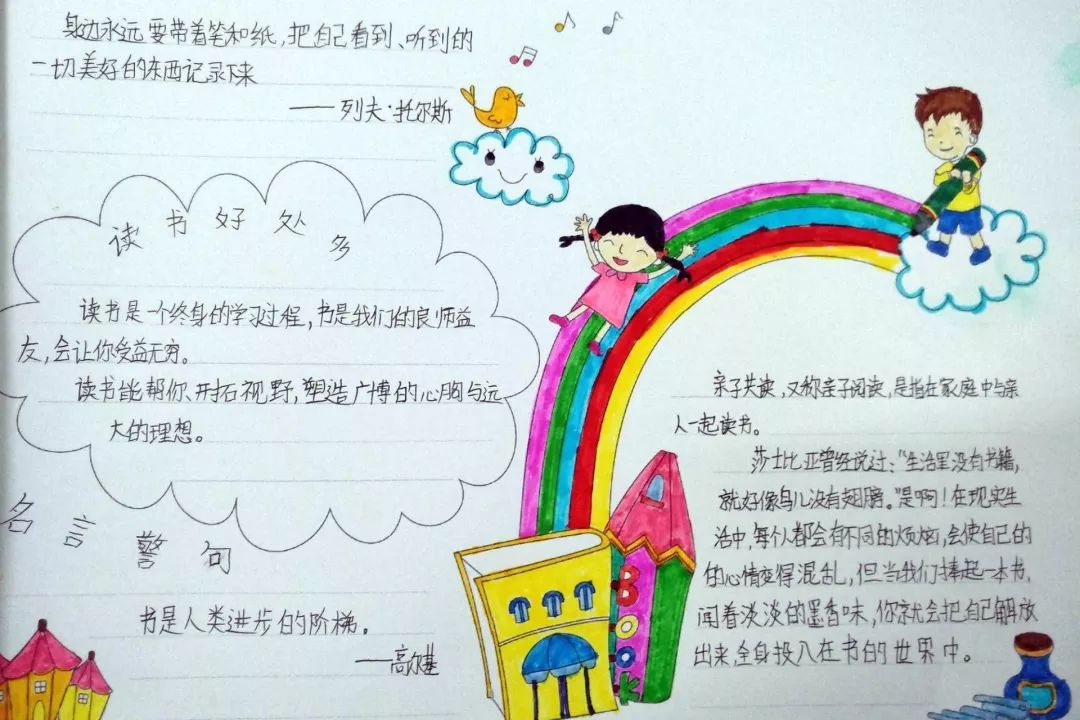 身边永远要带着笔和纸,把自己看到、听到的
一切美好的东西记录下来
——列夫·托尔斯
读书好处多
读书是一个终身的学习过程,书是我们的良师益
友,会让你受益无穷。
读书能帮你、开拓视野,塑造广博的心胸与远
大的理想。
名言警句
书是人类进步的阶梯。
——高尔基
BOOK
亲子共读,又称亲子阅读,是指在家庭中与亲
人一起读书。
莎士比亚曾经说过:“生活里没有书籍,
就好像鸟儿没有翅膀。”是啊!在现实生
活中,每个人都会有不同的烦恼,会使自己的
的心情变得混乱,但当我们捧起一本书,
闻着淡淡的墨香味,你就会把自己解放
出来,全身投入在书的世界中。